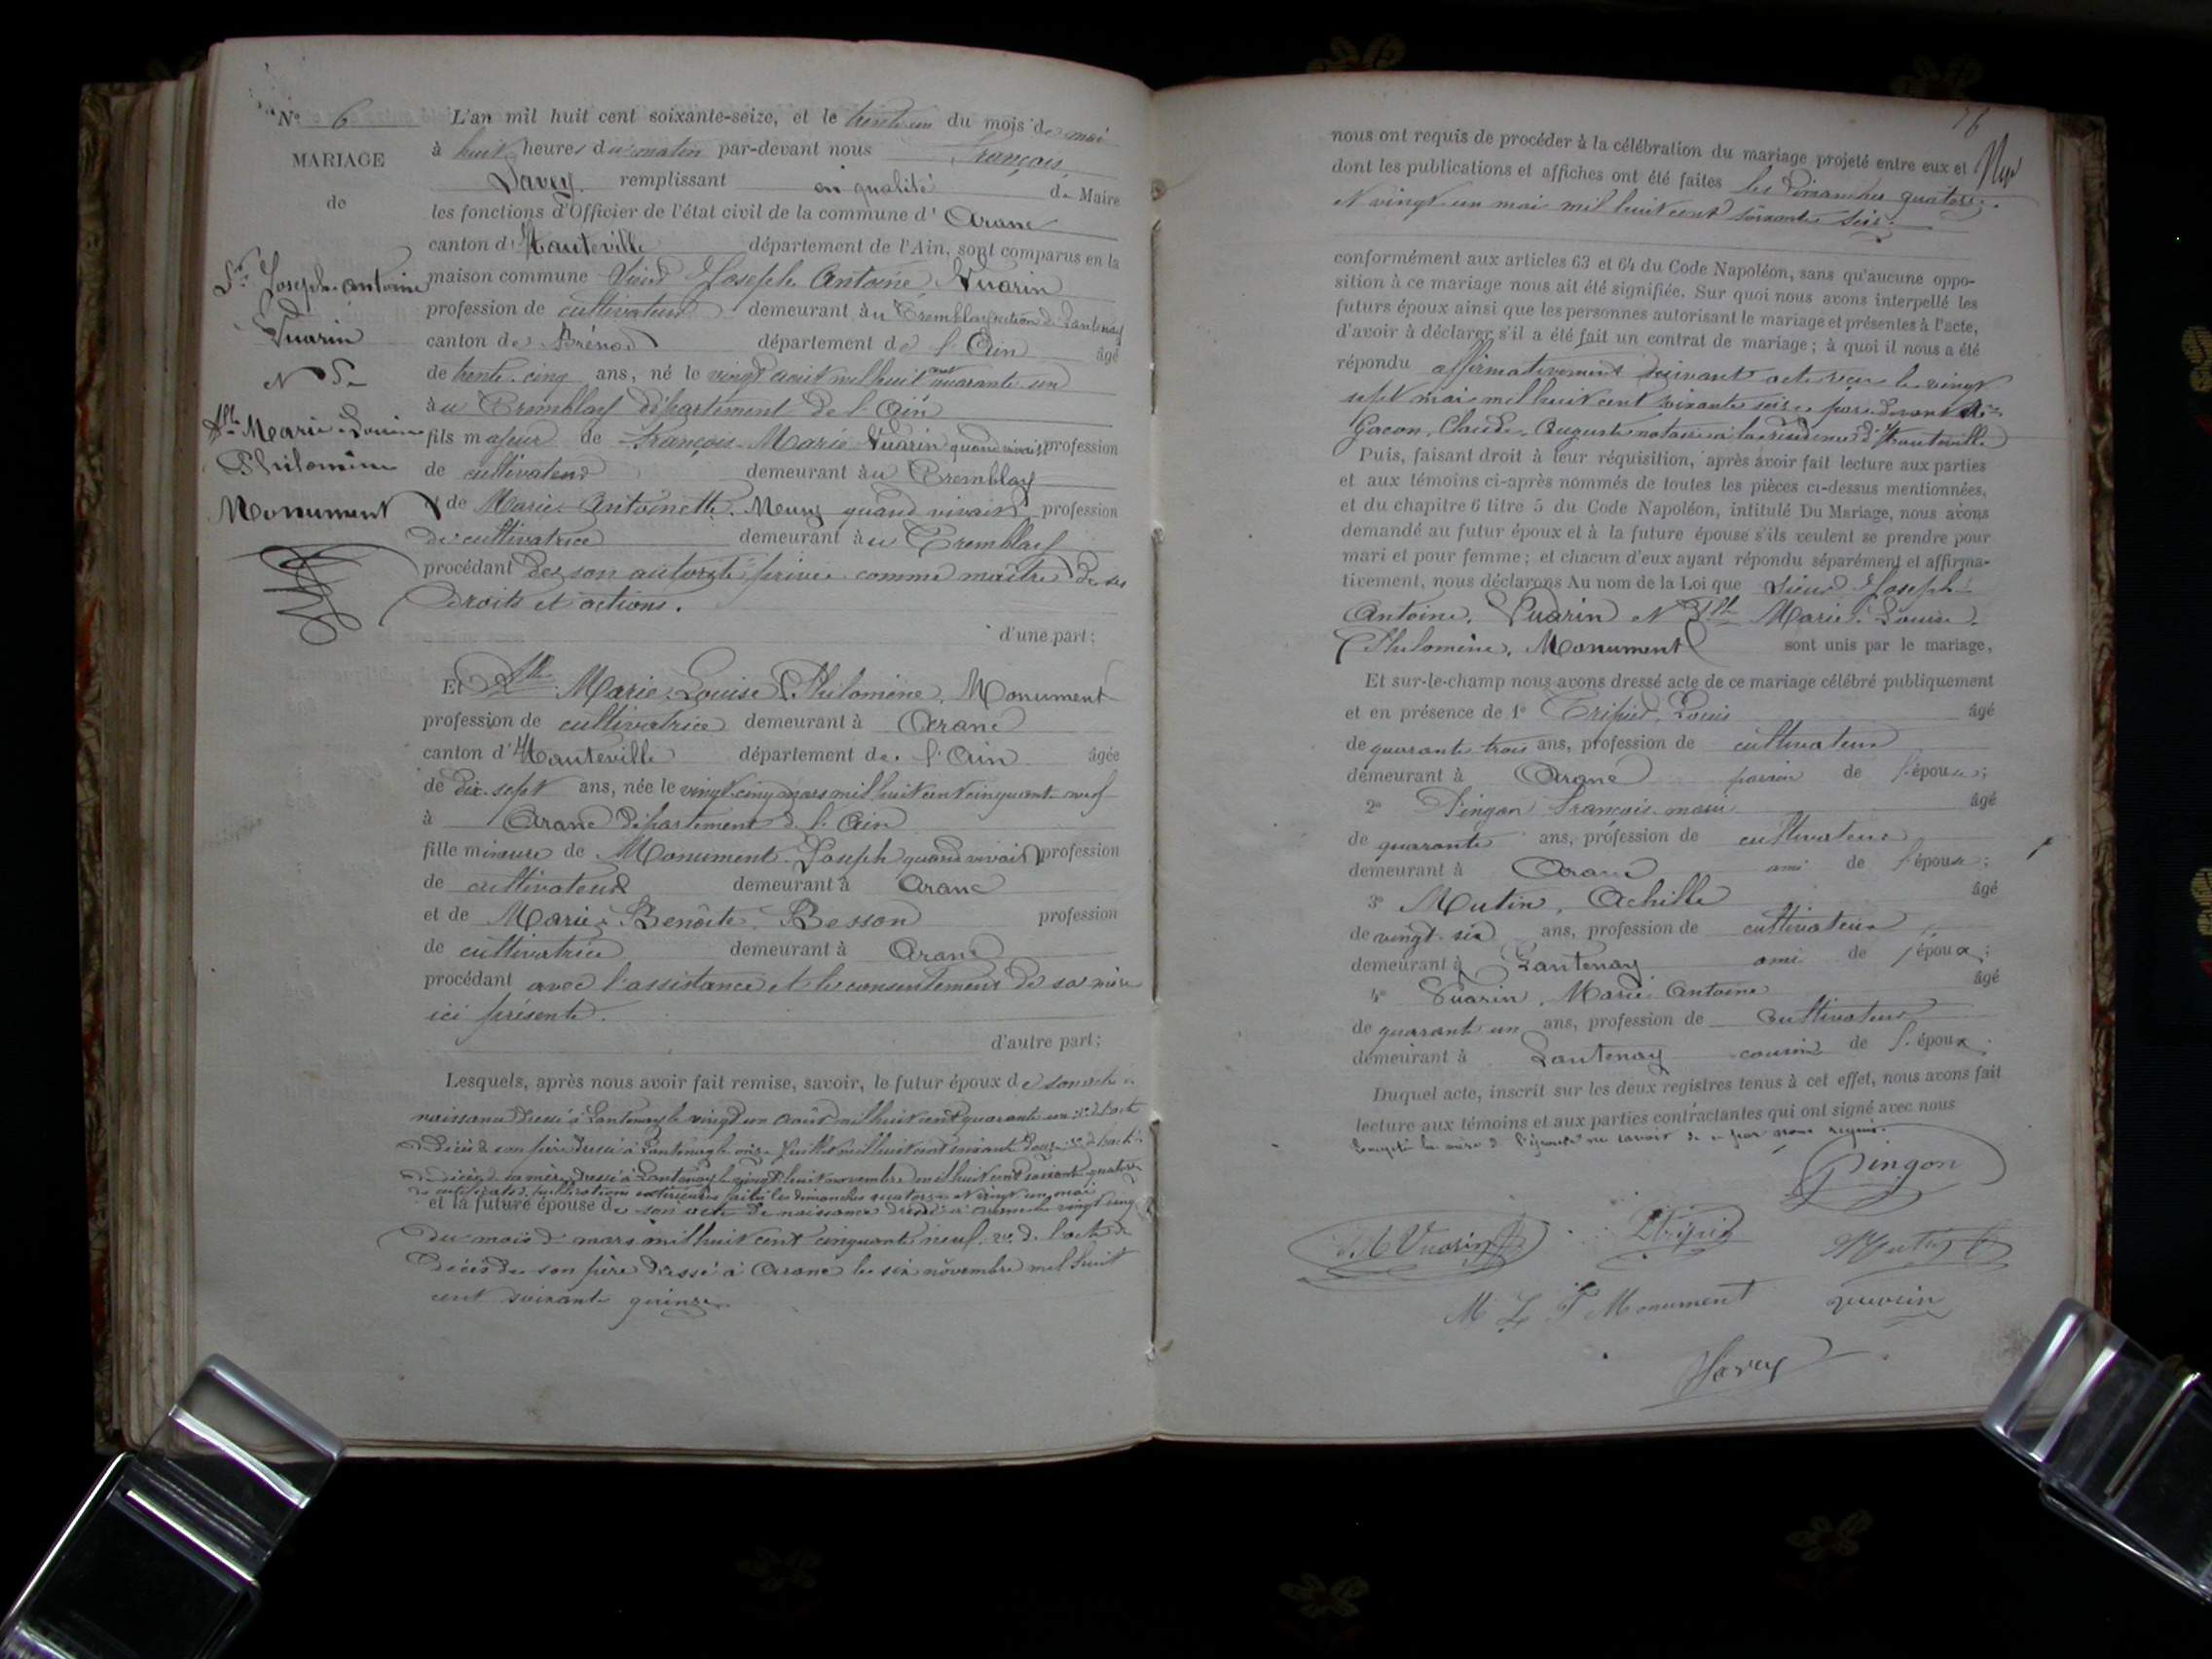 N° 6
MARIAGE
de
Sr Joseph-Antoine
Vuarin
et De
Dlle Marie-Louise
Philomène
Monument
L'an mil huit cent soixante-seize, et le trente un du mois de mai
à huit heures du matin par-devant nous François
Savey remplissant en qualité de Maire
les fonctions d'Officier de l'état civil de la commune d'Aranc
canton d'Hauteville département de l'Ain, sont comparus en la
maison commune Sieur Joseph Antoine Vuarin
profession de cultivateur demeurant au Tremblay section de Lantenay
canton de Brénod département de l'Ain âgé
de trente-cinq ans, né le vingt août mil huit cent quarante-un
au Tremblay département de l'Ain
fils majeur de François-Marie Vuarin quand vivait profession
de cultivateur demeurant au Tremblay
et de Marie-Antoinette quand vivait profession
de cultivatrice demeurant au Tremblay
procédant de son autorité privée comme maître de ses
droits et actions.
d'une part;
Et Dlle Marie-Louise Philomène, Monument
profession de cultivatrice demeurant à Aranc
canton d'Hauteville département de l'Ain âgée
de dix-sept ans, née le vingt-cinq mars mil huit cent cinquante-neuf
à Aranc département de l'Ain
fille mineure de Monument Joseph quand vivait profession
de cultivateur demeurant à Aranc
et de Marie-Benoîte Besson profession
de cultivatrice demeurant à Aranc
procédant avec l'assistance et le consentement de sa mère
ici présente.
d'autre part;
Lesquels, après nous avoir fait remise, savoir, le futur époux de son acte de
naissance dressé à Lantenay le vingt un août mil huit cent quarante-un; 2° de l'acte
de décès de son père dressé à Lantenay le onze juillet mil huit cent soixante douze; 3° de l'acte
de décès de sa mère dressé à Lantenay le vingt huit novembre mil huit cent soixante quatorze
de certificat de publications extérieures faites les dimanches quatorze et vingt un mai
et la future épouse de son acte de naissance dressé à Aranc le vingt cinq
du mois de mars mil huit cent cinquante neuf, 2° de l'acte de
décès de son père dressé à Aranc le six novembre mil huit
cent soixante quinze.
76
nous ont requis de procéder à la célébration du mariage projeté entre eux et
dont les publications et affiches ont été faites les dimanches quatorze
et vingt un mai mil huit cent soixante seize.
conformément aux articles 63 et 64 du Code Napoléon, sans qu'aucune oppo-
sition à ce mariage nous ait été signifiée. Sur quoi nous avons interpellé les
futurs époux ainsi que les personnes autorisant le mariage et présentes à l'acte,
d'avoir à déclarer s'il a été fait un contrat de mariage; à quoi il nous a été
répondu affirmativement suivant acte reçu le vingt
sept mai mil huit cent soixante seize par devant Me
Gacon, Claude-Auguste notaire à la résidence d'Hauteville
Puis, faisant droit à leur réquisition, après avoir fait lecture aux parties
et aux témoins ci-après nommés de toutes les pièces ci-dessus mentionnées,
et du chapitre 6 titre 5 du Code Napoléon, intitulé Du Mariage, nous avons
demandé au futur époux et à la future épouse s'ils veulent se prendre pour
mari et pour femme; et chacun d'eux ayant répondu séparément et affirma-
tivement, nous déclarons Au nom de la Loi que Sieur Joseph
Antoine, Vuarin et Dlle Marie-Louise
Philomène, Monument sont unis par le mariage,
Et sur-le-champ nous avons dressé acte de ce mariage célébré publiquement
et en présence de 1° Tripied, Louis âgé
de quarante trois ans, profession de cultivateur
demeurant à Aranc de l'épouse;
2° Pingon François-marie âgé
de quarante ans, profession de cultivateur
demeurant à Aranc ami de l'épouse;
3° Mutin, Achille âgé
de vingt-six ans, profession de cultivateur
demeurant à Lantenay ami de l'époux;
4° Vuarin, Marie Antoine âgé
de quarante un ans, profession de Cultivateur
demeurant à Lantenay cousin de l'époux
Duquel acte, inscrit sur les deux registres tenus à cet effet, nous avons fait
lecture aux témoins et aux parties contractantes qui ont signé avec nous
Excepté la mère de l'épouse ne savoir de ce par nous requis.
Pingon
J. A Vuarin
Tripied
Mutin
M L P Monument
vuarin
Savey